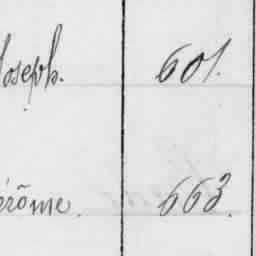 Joseph. 601.
érôme. 663.